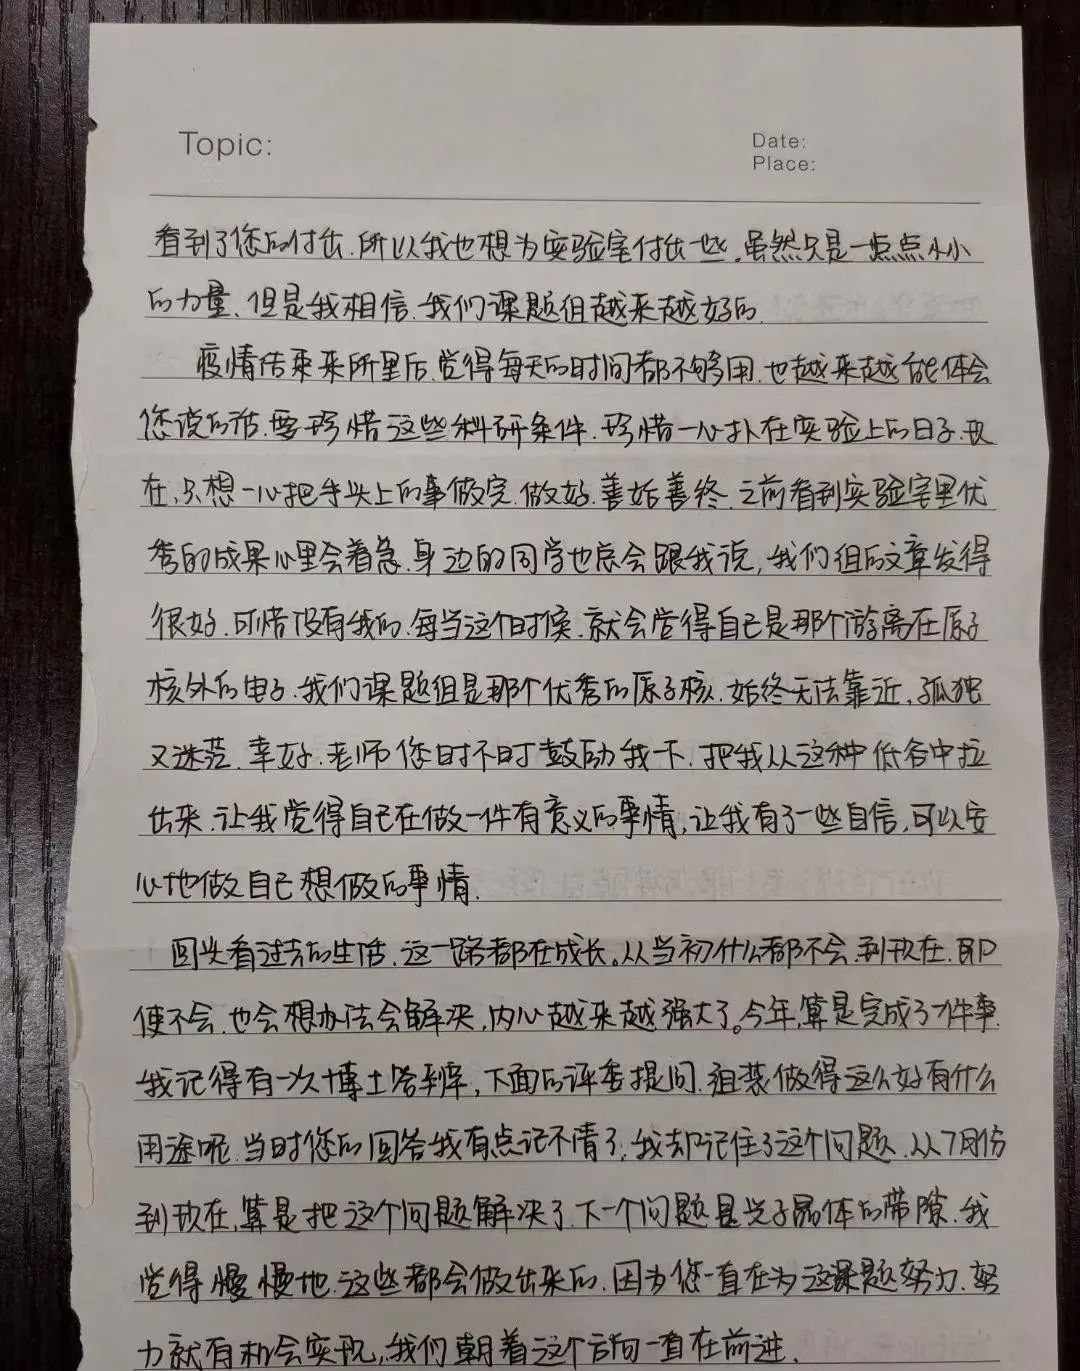 Topic:
Date:
Place:
看到了您的付出.所以我也想为实验室付出一些.虽然只是一点点小小
的力量.但是我相信.我们课题组越来越好的.
疫情结束来所里后.觉得每天的时间都不够用.也越来越能体会
您说的话.要珍惜这些科研条件.珍惜一心扑在实验上的日子.现
在,只想一心把手头上的事做完.做好.善始善终.之前看到实验室里优
秀的成果心里会着急.身边的同学也总会跟我说,我们组的文章发得
很好.可惜没有我的.每当这个时候.就会觉得自己是那个游离在原子
核外的电子.我们课题组是那个优秀的原子核.始终无法靠近.孤独
又迷茫.幸好.老师您时不时鼓励我一下.把我从这种低谷中拉
出来.让我觉得自己在做一件有意义的事情,让我有了一些自信,可以安
心地做自己想做的事情.
回头看过去的生活.这一路都在成长。从当初什么都不会.到现在.即
使不会.也会想办法会解决,内心越来越强大了。今年,算是完成了1件事.
我记得有一次博士答辩,下面的评委提问.组装做得这么好有什么
用途呢.当时您的回答我有点记不清了,我却记住了这个问题.从7月份
到现在,算是把这个问题解决了.下一个问题是光子晶体的带隙.我
觉得慢慢地.这些都会做出来的.因为您一直在为这课题努力.努
力就有机会实现,我们朝着这个方向一直在前进.